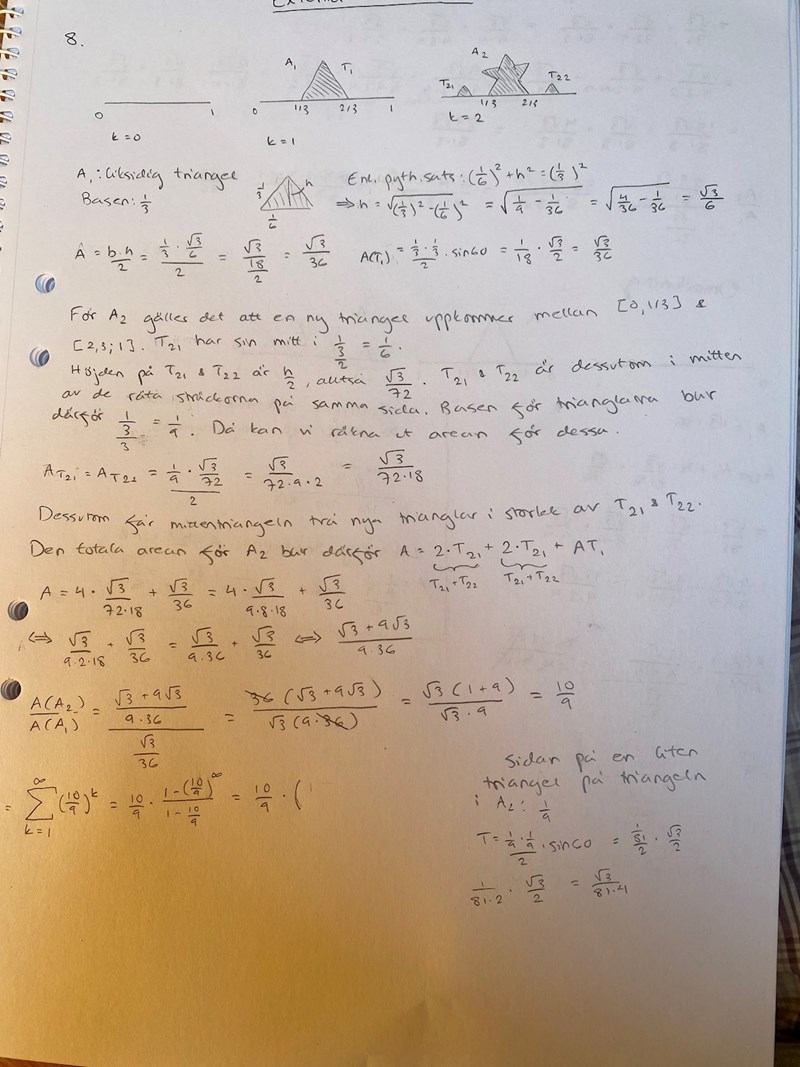 8.
A₁ T₁ A₂ T₂₁ T₂₂
0 1 0 1/3 2/3 1 1/3 2/3
k=0 k=1 k=2
A₁: liksidig triangel
Basen: 1/3
1/3 h 1/6
Enl. pyth. sats: (1/6)² + h² = (1/3)²
⇒ h = √((1/3)² - (1/6)²) = √(1/9 - 1/36) = √(4/36 - 1/36) = √3/6
A = b·h/2 = (1/3 · √3/6)/2 = (√3/18)/2 = √3/36 A(T₁) = (1/3 · 1/3)/2 · sin60 = 1/18 · √3/2 = √3/36
För A₂ gälles det att en ny triangel uppkommer mellan [0,1/3] &
[2,3;1]. T₂₁ har sin mitt i (1/3)/2 = 1/6.
Höjden på T₂₁ & T₂₂ är h/2, alltså √3/72. T₂₁ & T₂₂ är dessutom i mitten
av de räta sträckorna på samma sida. Basen för trianglarna bur
därför (1/3)/3 = 1/9. Då kan vi räkna ut arean för dessa.
A_T₂₁ = A_T₂₂ = (1/9 · √3/72)/2 = √3/(72·9·2) = √3/(72·18)
Dessutom får mittentriangeln två nya trianglar i storlek av T₂₁ & T₂₂.
Den totala arean för A₂ bur därför A = 2·T₂₁ + 2·T₂₁ + AT₁
T₂₁+T₂₂ T₂₁+T₂₂
A = 4 · √3/(72·18) + √3/36 = 4 · √3/(9·8·18) + √3/36
⇔ √3/(9·2·18) + √3/36 = √3/(9·36) + √3/36 ⇔ (√3 + 9√3)/(9·36)
A(A₂)/A(A₁) = ((√3 + 9√3)/(9·36))/(√3/36) = 36(√3 + 9√3)/(√3(9·36)) = √3(1+9)/(√3·9) = 10/9
= ∑_{k=1}^{∞} (10/9)^k = 10/9 · (1-(10/9)^∞)/(1-10/9) = 10/9 · (
Sidan på en liten
triangel på triangeln
i A₂: 1/9
T = (1/9 · 1/9)/2 · sin60 = (1/81)/2 · √3/2
1/(81·2) · √3/2 = √3/(81·4)